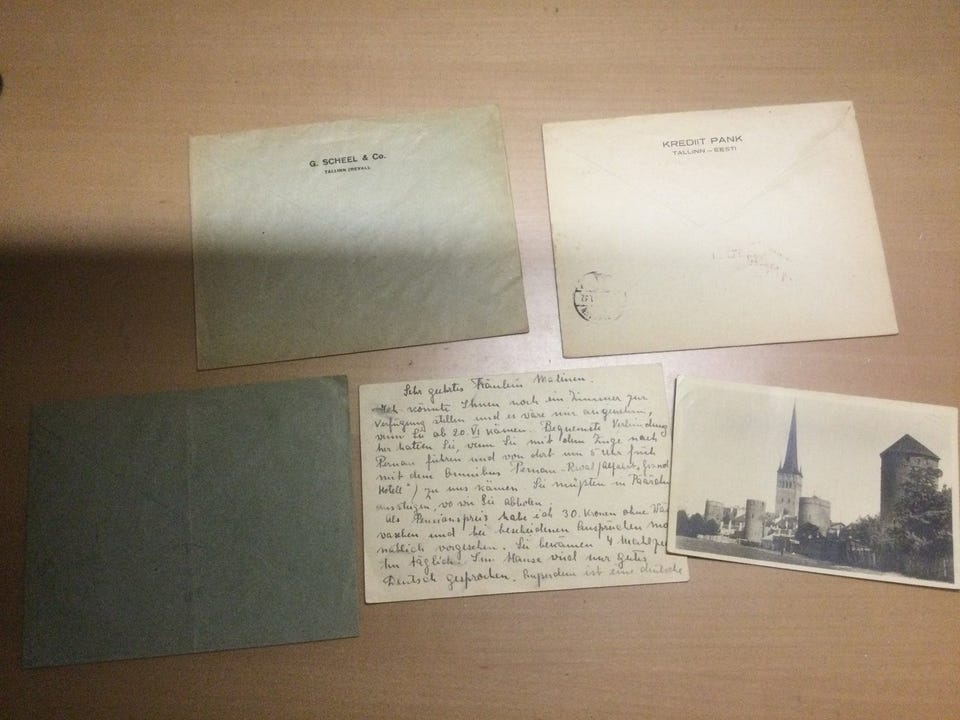 G. SCHEEL & Co.
TALLINN (REVAL)
KREDIIT PANK
TALLINN – EESTI
Sehr geehrtes Fräulein Malinen.
Ich könnte Ihnen noch ein Zimmer zur
Verfügung stellen und es wäre mir angenehm,
wenn Sie ab 20. VI kämen. Bequemste Verbindung
her hätten Sie, wenn Sie mit dem Zuge nach
Pernau führen und von dort um 5 Uhr früh
mit dem Omnibus Pernau – (Abfahrt „Grand
Hotell") zu uns kämen. Sie müßten in
aussteigen, wo wir Sie abholen.
Als Pensionspreis habe ich 30. Kronen ohne
waschen und bei bescheidenen Ansprüchen mo
natlich vorgesehen. Sie bekämen 4 Mahlzei
ten täglich. Im Hause wird nur gutes
Deutsch gesprochen. Außerdem ist eine deutsche